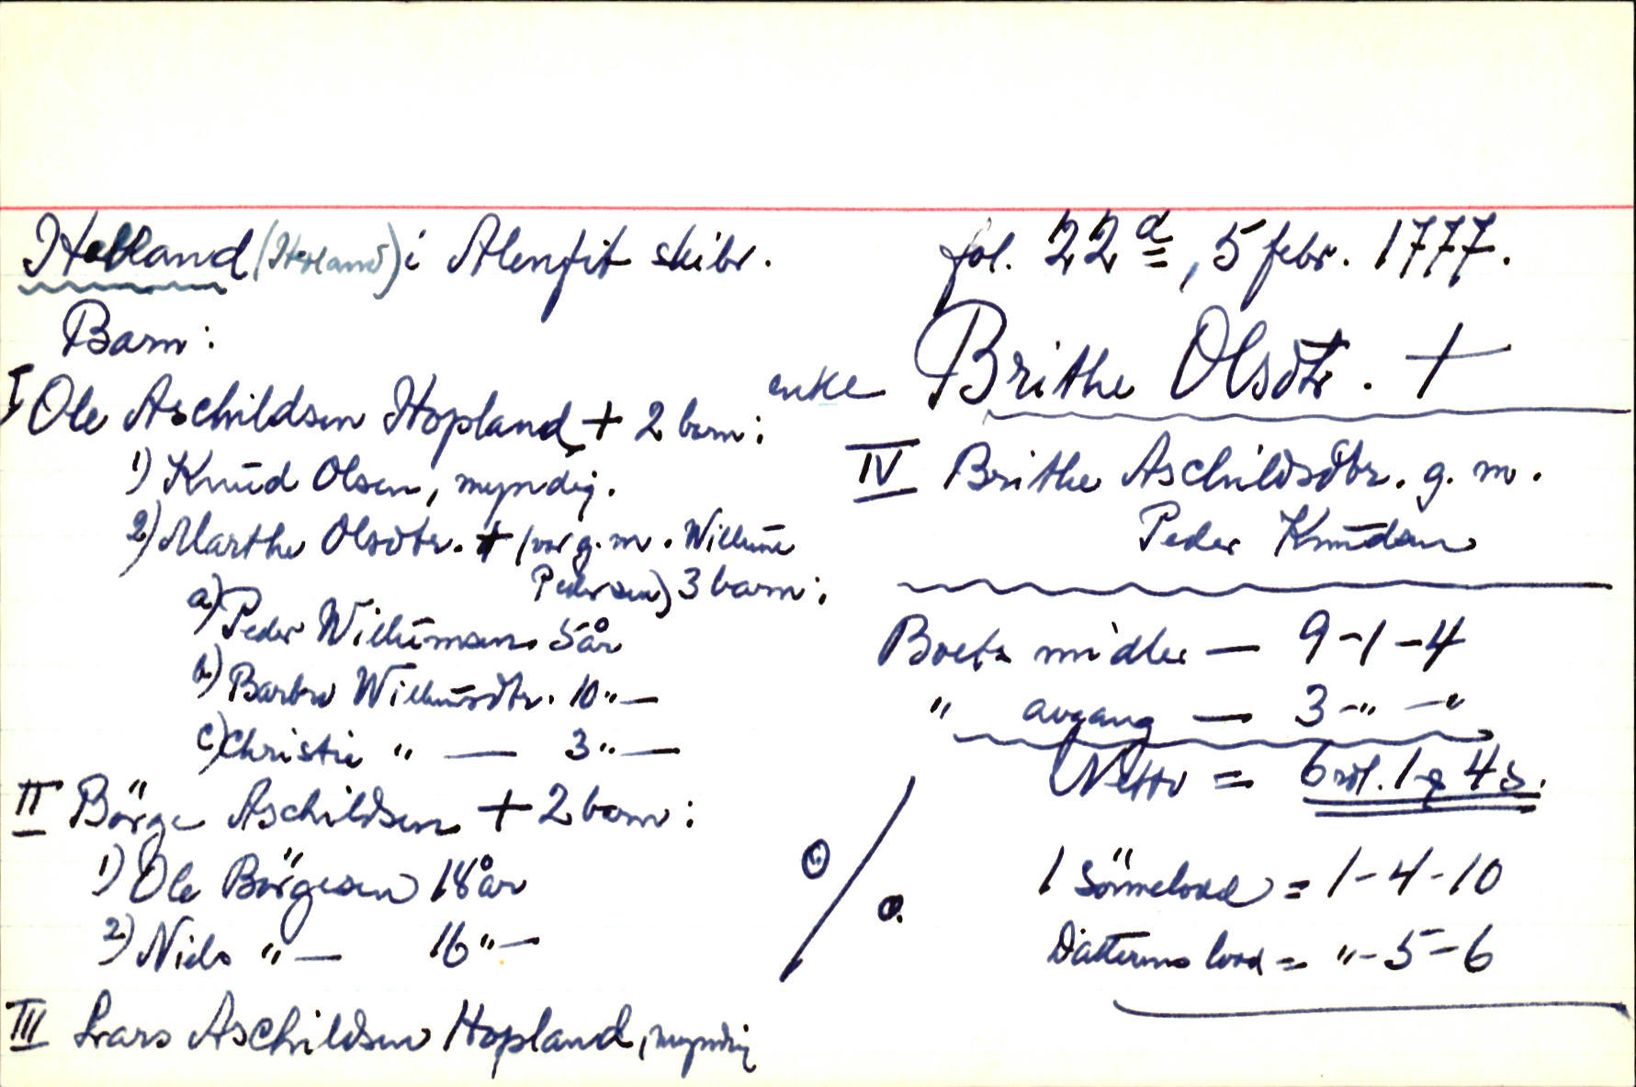 Holland (Hopland) i Alenfit skibr.
fol. 22a, 5 febr. 1777.
enke Brithe Olsdtr. +
Barn:
I Ole Aschildsen Hopland + 2 barn:
1) Knud Olsen, myndig.
2) Marthe Olsdtr. + (var g. m. Willum
Pedersen) 3 barn:
a) Peder Willumsen 5 år
b) Barbro Willumsdtr. 10 " —
c) Christie " — 3 " —
II Börge Aschildsen + 2 barn:
1) Ole Börgesen 18 år
2) Niels " — 16 " —
III Lars Aschildsen Hopland, myndig
IV Brithe Aschildsdtr. g. m.
Peder Knudsen
Boets midler — 9-1-4
" avgang — 3-"-"
Netto = 6 rdl. 1 4 s.
1 Sönnelodd = 1-4-10
Datterens lodd = "-5-6